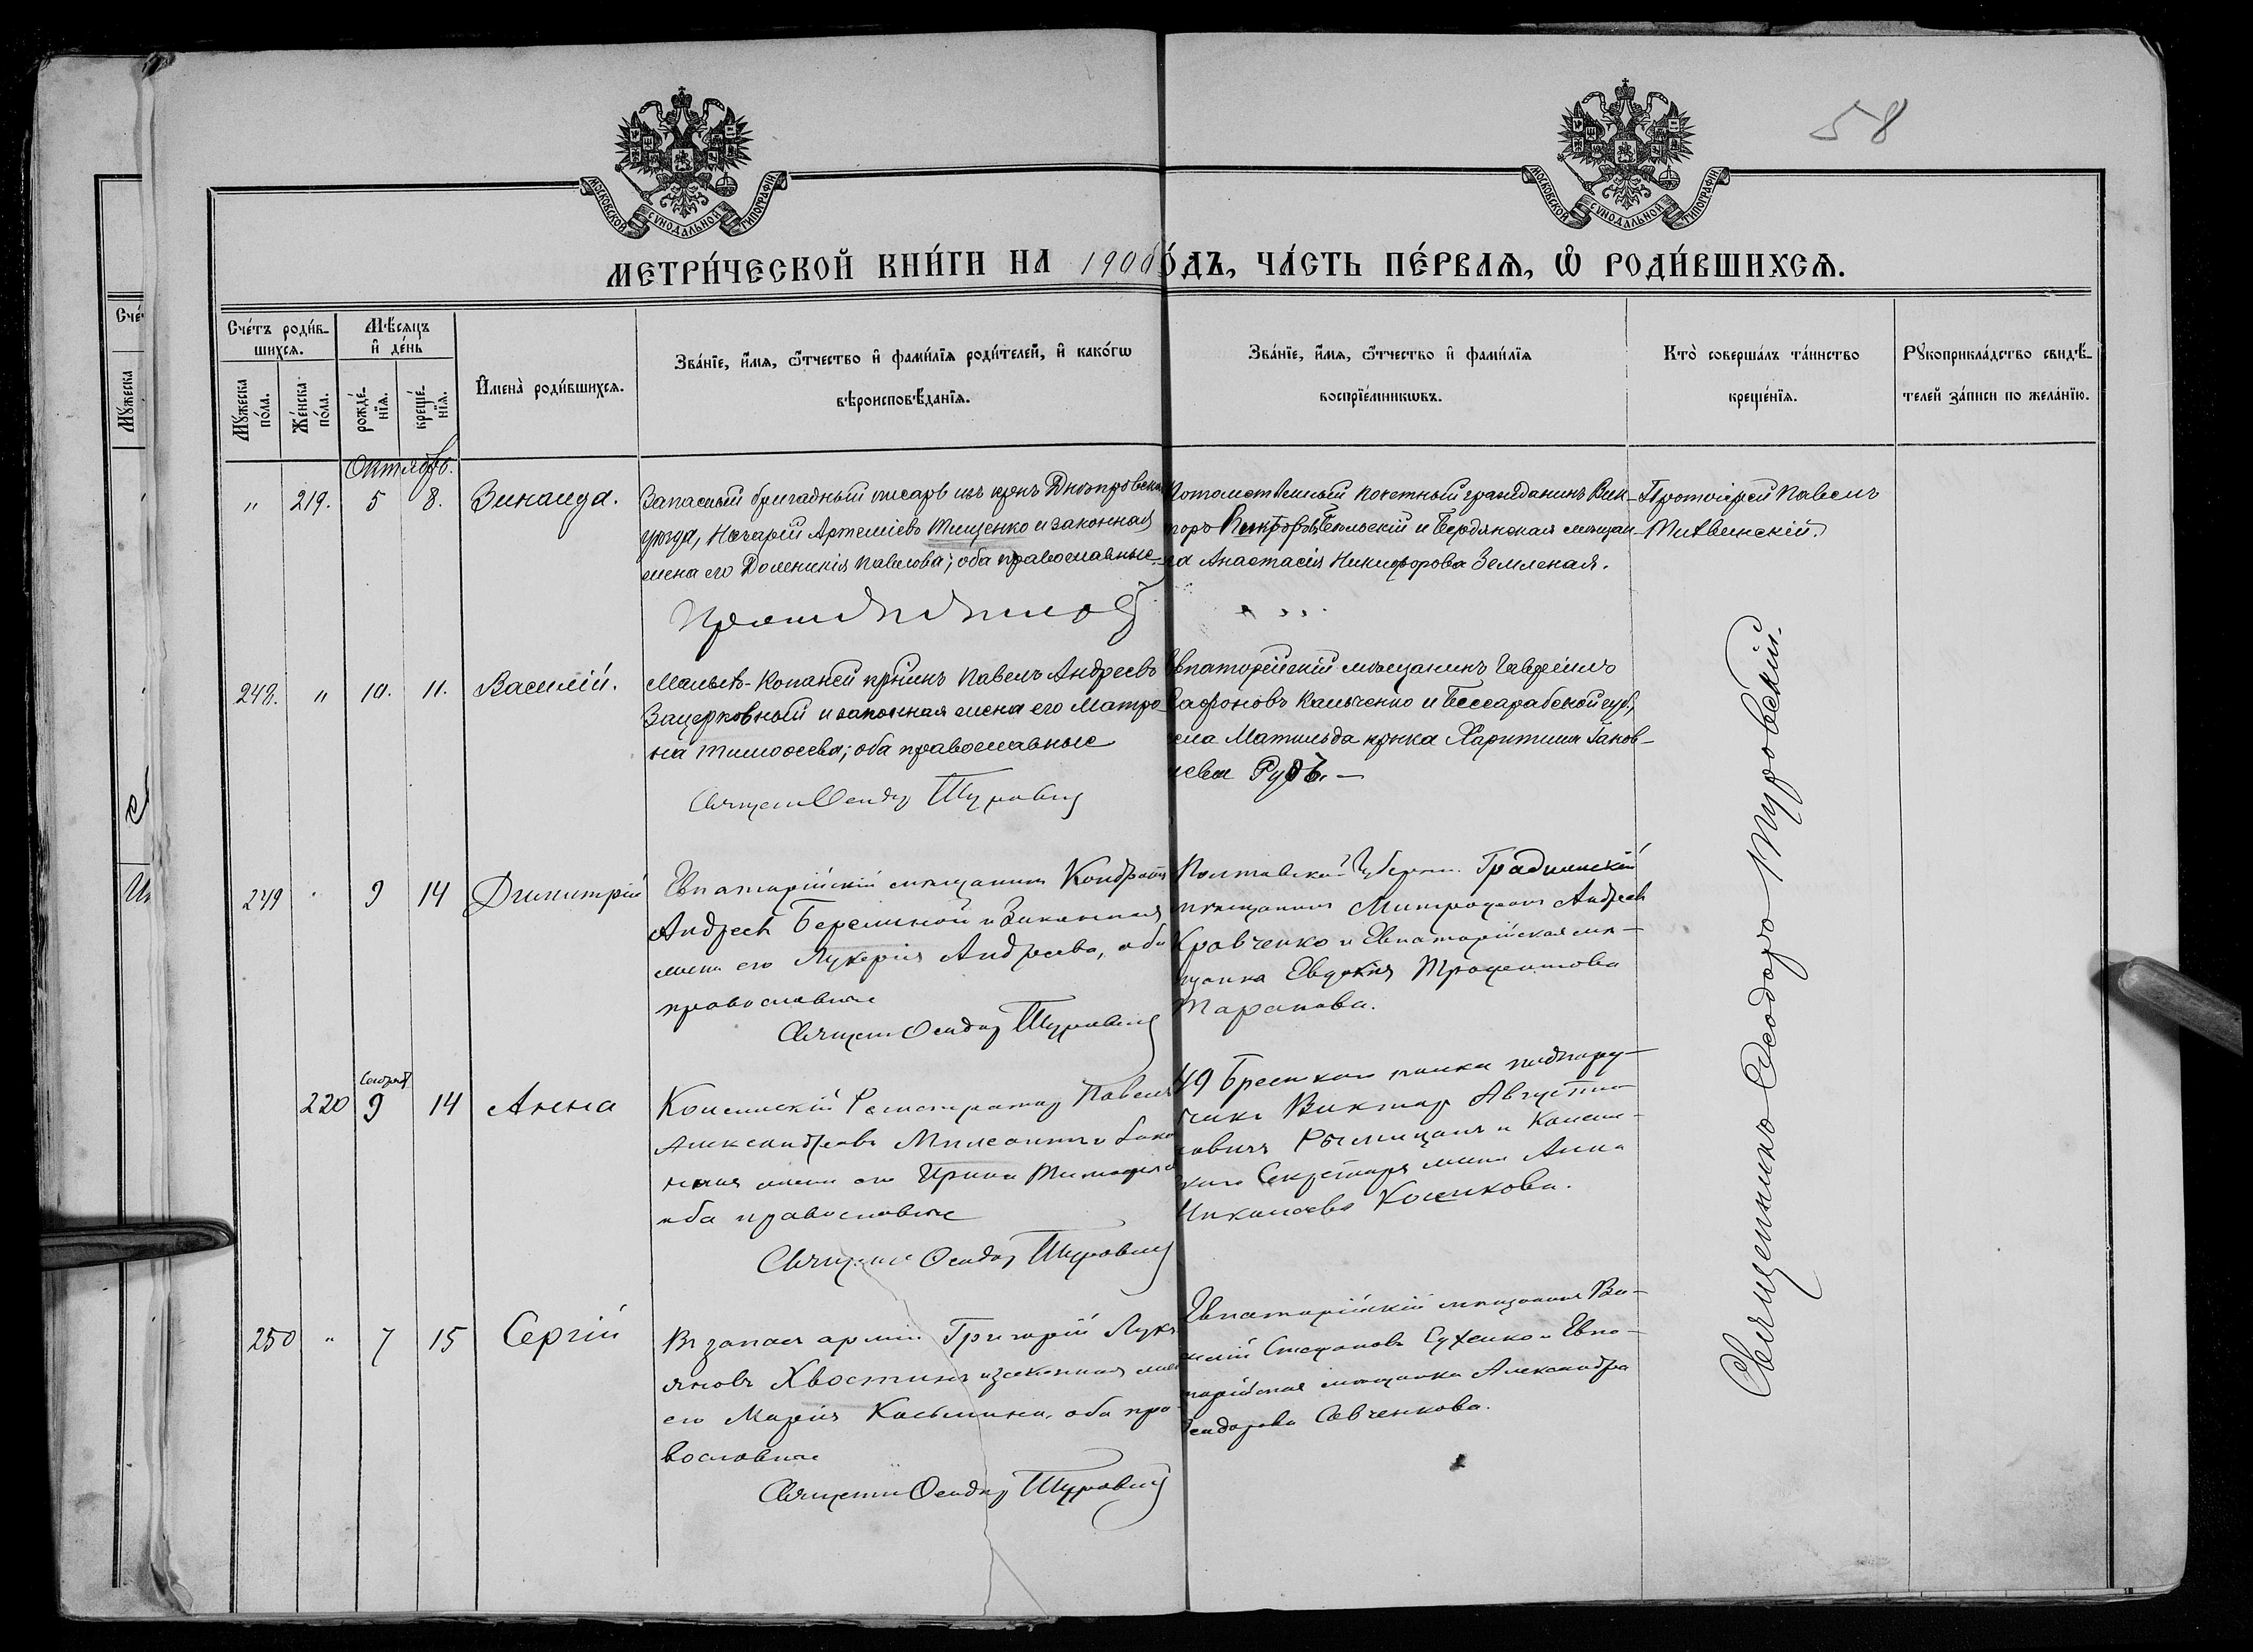 58
МОСКОВСКОЙ СѴНОДАЛЬНОЙ ТИПОГРАФІИ
МОСКОВСКОЙ СѴНОДАЛЬНОЙ ТИПОГРАФІИ
МЕТРИ́ЧЕСКОЙ КНИ́ГИ НА 1900 ГО́ДЪ, ЧА́СТЬ ПЕ́РВАѦ, Ѡ҆ РОДИ́ВШИХСѦ.
Сче́тъ роди́в-
шихсѧ.
Мꙋ́жеска по́ла.
Же́нска по́ла.
Мѣ́сѧцъ и҆ де́нь
рожде́-
нїѧ.
креще́-
нїѧ.
И҆мена̀ роди́вшихсѧ.
Зва́нїе, и҆́мѧ, ѻ҆́тчество и҆ фами́лїѧ роди́телей, и҆ како́гѡ
вѣроисповѣ́данїѧ.
Зва́нїе, и҆́мѧ, ѻ҆́тчество и҆ фами́лїѧ
воспрїе́мникѡвъ.
Кто̀ соверша́лъ та́инство
креще́нїѧ.
Рꙋкоприкла́дство свидѣ́-
телей за́писи по жела́нїю.
Октябрь.
" 219. 5 8. Зинаида.
Запасный бригадный писарь изъ крнъ Днѣпровска
уѣзда, Назарій Артеміевъ Тищенко и законная
жена его Доминикія Павлова; оба православные.
Потомственный почетный гражданинъ Вик-
торъ Бѣльскій и Бердянская мѣщан-
ка Анастасія Никифорова Земленая.
Протоіерей Павелъ
Тихвинскій.
248. " 10. 11. Василій.
Малыхъ-Копаней крнинъ Павелъ Андреевъ
Зацерковный и законная жена его Матро-
на Тимоѳеева; оба православные
Священ Ѳеодор Туровскій
Евпаторійскій мѣщанинъ Гавріилъ
Сафоновъ Кальченко и Бессарабской губ.,
села Матильда крнка Харитина Іаков-
лева Рудь. —
249 9 14 Димитрій
Евпаторійскій мѣщанинъ Кондратъ
Андреевъ Бережной и Законная
жена его Лукерія Андреева, оба
православные
Священ Ѳеодор Туровскій
Полтавской Губерніи Градижскій
мѣщанинъ Митрофанъ Андреевъ
Кравченко и Евпаторійская мѣ-
щанка Евдокія Трофимова
Таранова.
220 9 14 Анна
Коллежскій Регистраторъ Павелъ
Александровъ и Зако
нная жена его Ирина
оба православные
Священ Ѳеодор Туровскій
49 Брестскаго полка подпору-
чикъ Викторъ Августи-
новичъ и Коллеж-
скаго Секретаря жена Анна
Николаева Косикова.
250 " 7 15 Сергій
Въ запасѣ арміи Григорій Лукь
яновъ Хвостинъ и законная жена
его Марія Касьянина, оба пра
вославные
Священ Ѳеодор Туровскій
Евпаторійскій мѣщанинъ Ва-
силій Степановъ Сухенко и Евпа-
торійская мѣщанка Александра
Ѳеодорова Савченкова.
Священникъ Ѳеодоръ Туровскій.